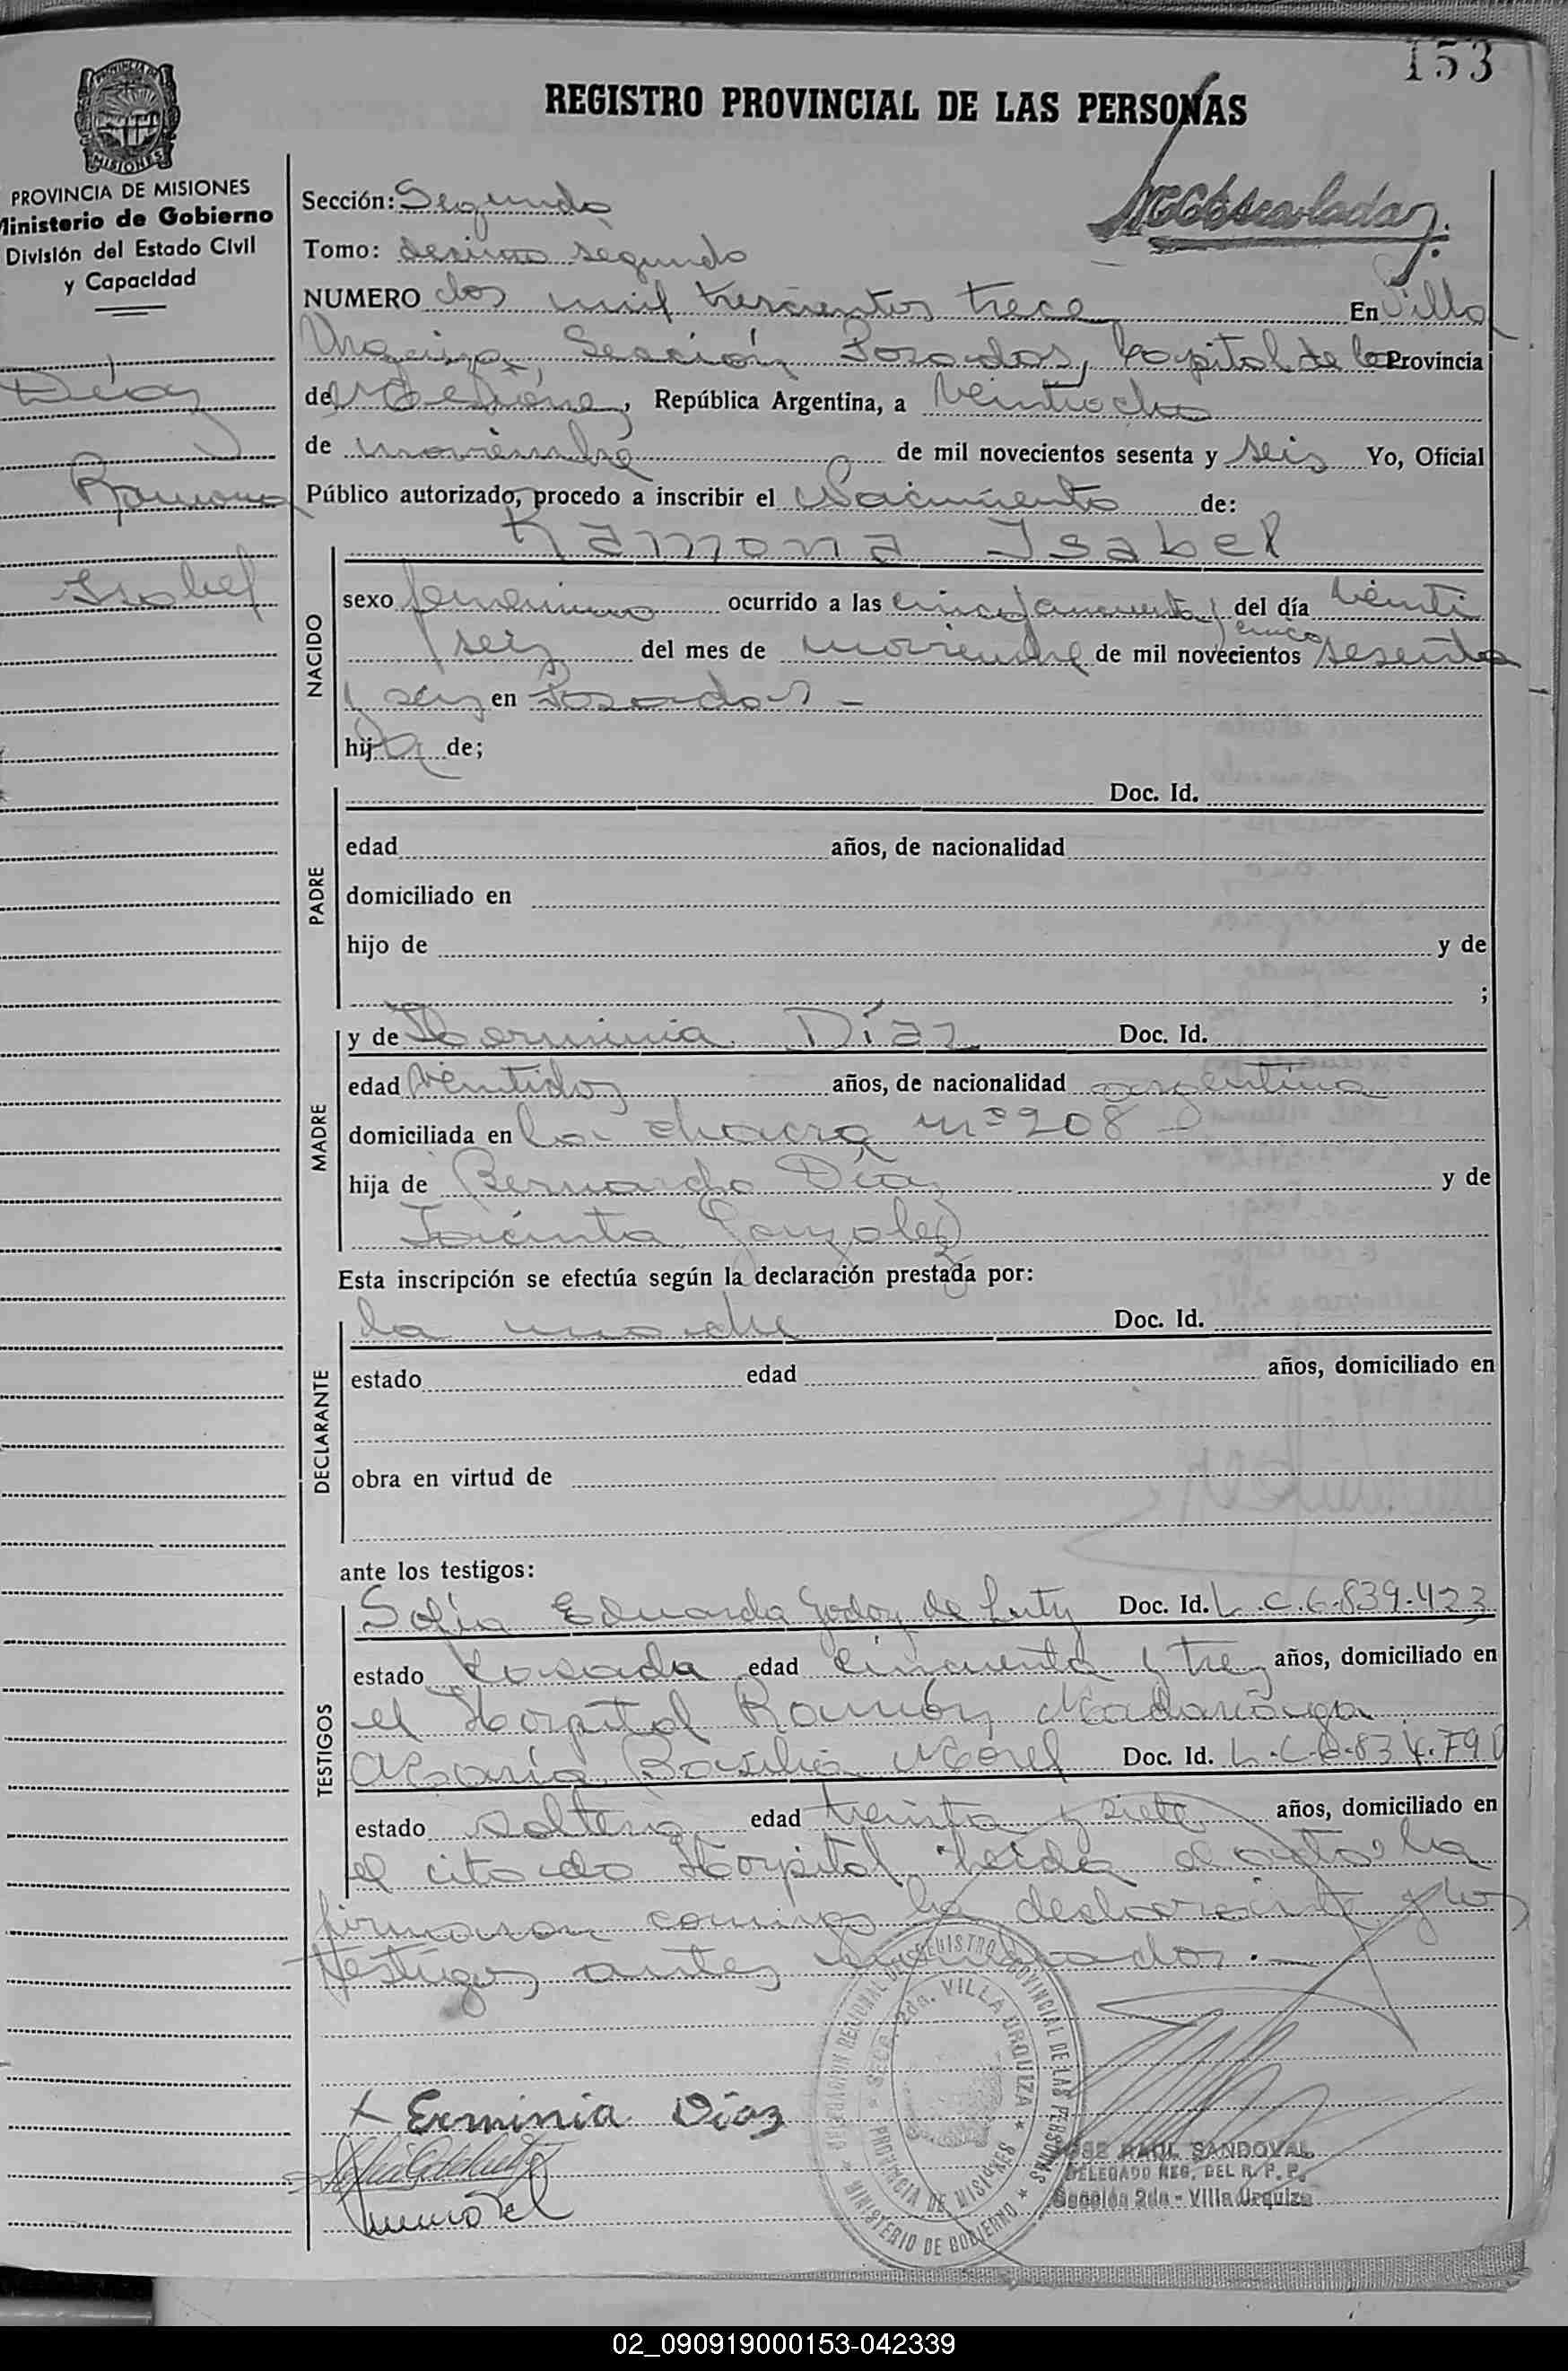 153
REGISTRO PROVINCIAL DE LAS PERSONAS
PROVINCIA DE MISIONES
PROVINCIA DE MISIONES
Ministerio de Gobierno
División del Estado Civil
y Capacidad
Díaz
Ramona
Isabel
Sección: Segunda
Tomo: desimo segundo
NUMERO dos mil trescientos trece En Villa
Urquiza, Sección Posadas, Capital de la Provincia
de Misiones, República Argentina, a veintiocho
de noviembre de mil novecientos sesenta y seis Yo, Oficial
Público autorizado, procedo a inscribir el Nacimiento de:
Ramona Isabel
NACIDO
sexo femenino ocurrido a las cinco y cincuenta y cinco del día veinti
seis del mes de noviembre de mil novecientos sesenta
y seis en Posadas -
hija de;
PADRE
Doc. Id.
edad años, de nacionalidad
domiciliado en
hijo de y de
;
MADRE
y de Herminia Díaz Doc. Id.
edad veintidos años, de nacionalidad argentina
domiciliada en la chacra nº 208
hija de Bernardo Díaz y de
Jacinta Gonzalez
Esta inscripción se efectúa según la declaración prestada por:
DECLARANTE
la madre Doc. Id.
estado edad años, domiciliado en
obra en virtud de
ante los testigos:
TESTIGOS
Sofia Eduarda Godoy de Doc. Id. L.C.6.839.423
estado casada edad cincuenta y tres años, domiciliado en
el Hospital Ramón Madariaga
María Basilia Morel Doc. Id. L.C.6.834.79
estado soltera edad treinta y siete años, domiciliado en
el citado Hospital leida el acta la
firmaron conmigo la declarante y los
testigos antes nombrados.-
x Erminia Díaz
DELEGACION REGIONAL DEL REGISTRO PROVINCIAL DE LAS PERSONAS
MINISTERIO DE GOBIERNO
2da. VILLA URQUIZA
PROVINCIA DE MISIONES
JOSE RAUL SANDOVAL
DELEGADO REG. DEL R. P. P.
Sección 2da - Villa Urquiza
02_090919000153-042339